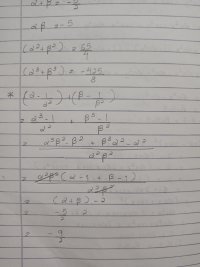 α + β = -5/2
αβ = -5
(α² + β²) = 65/4
(α³ + β³) = -425/8
* (α - 1/α²) + (β - 1/β²)
= α³ - 1/α² + β³ - 1/β²
= α³β² - β² + β³α² - α²/α²β²
= α²β²(α - 1 + β - 1)/α²β²
= (α + β) - 2
= -5/2 - 2
= -9/2